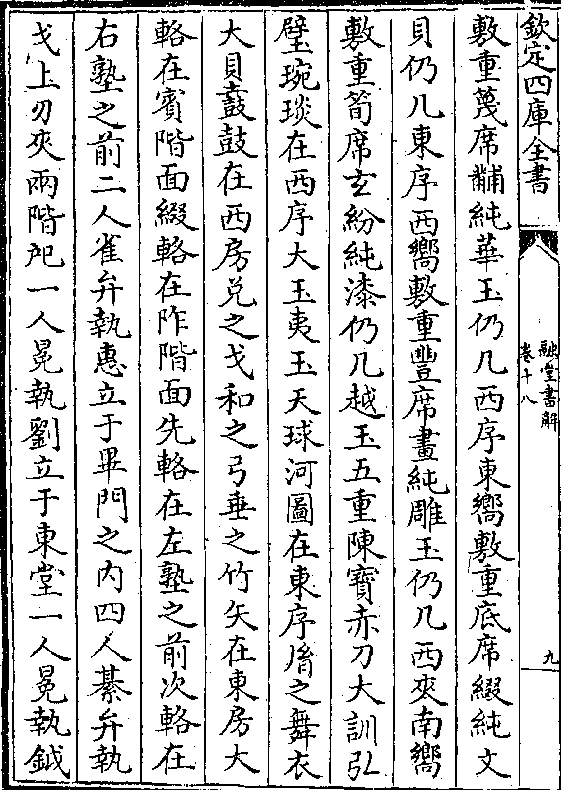 欽定四庫全書
融堂書解
卷十八
九
敷重篾席黼純華玉仍几西序東嚮敷重底席綴純文
貝仍几東序西嚮敷重豐席畫純雕玉仍几西夾南嚮
敷重筍席玄紛純漆仍几越玉五重陳寶赤刀大訓弘
璧琬琰在西序大玉夷玉天球河圖在東序胤之舞衣
大貝鼖鼓在西房兑之戈和之弓垂之竹矢在東房大
輅在賓階面綴輅在阼階面先輅在左塾之前次輅在
右塾之前二人雀弁執惠立于畢門之内四人綦弁執
戈上刃夾兩階戺一人冕執劉立于東堂一人冕執鉞